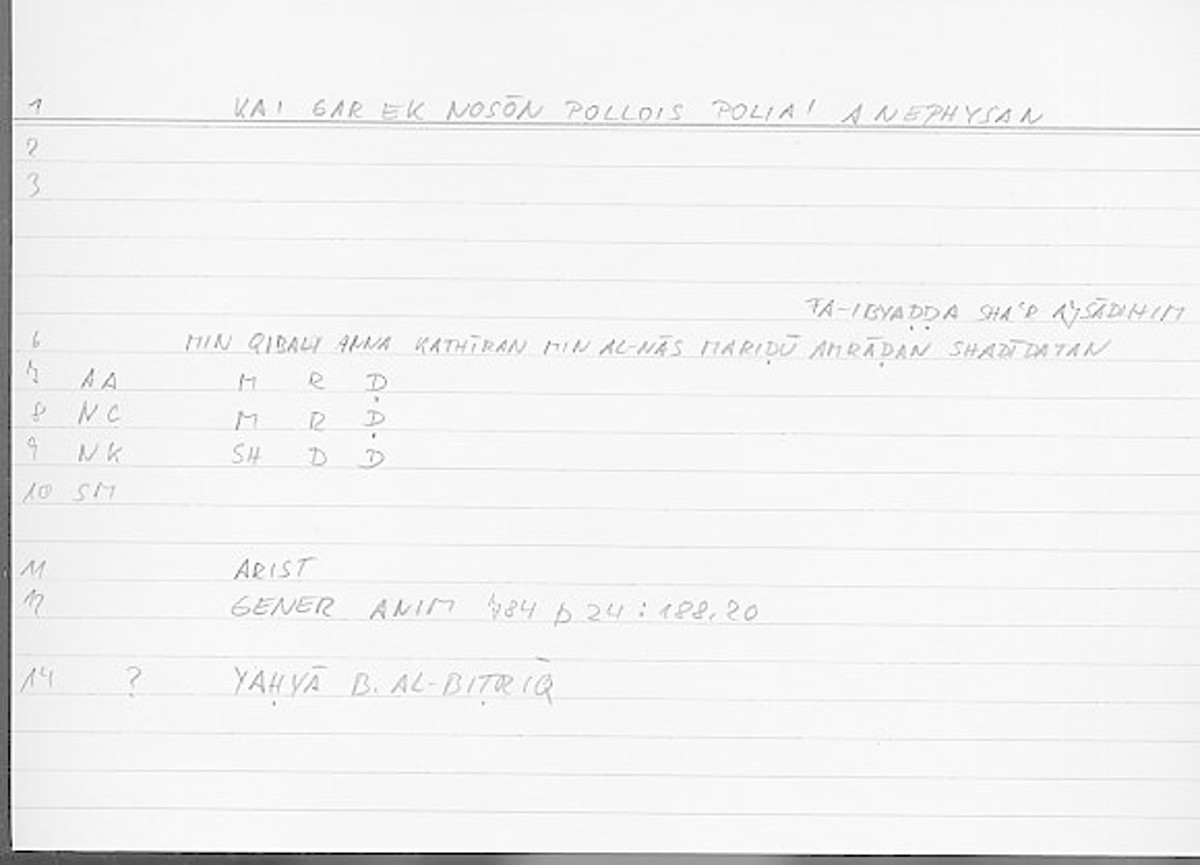 1 KAI GAR EK NOSŌN POLLOIS POLIA' ANEPHYSAN
2
3
FA-IBYAḌḌA SHA'R AJSĀDIHIM
6 MIN QIBALI ANNA KATHĪRAN MIN AL-NĀS MARIḌŪ AMRĀḌAN SHADĪDATAN
7 AA M R Ḍ
8 NC M R Ḍ
9 NK SH D Ḍ
10 SM
11 ARIST
12 GENER ANIM 784 b 24 : 188.20
14 ? YAḤYĀ B. AL-BIṬRĪQ